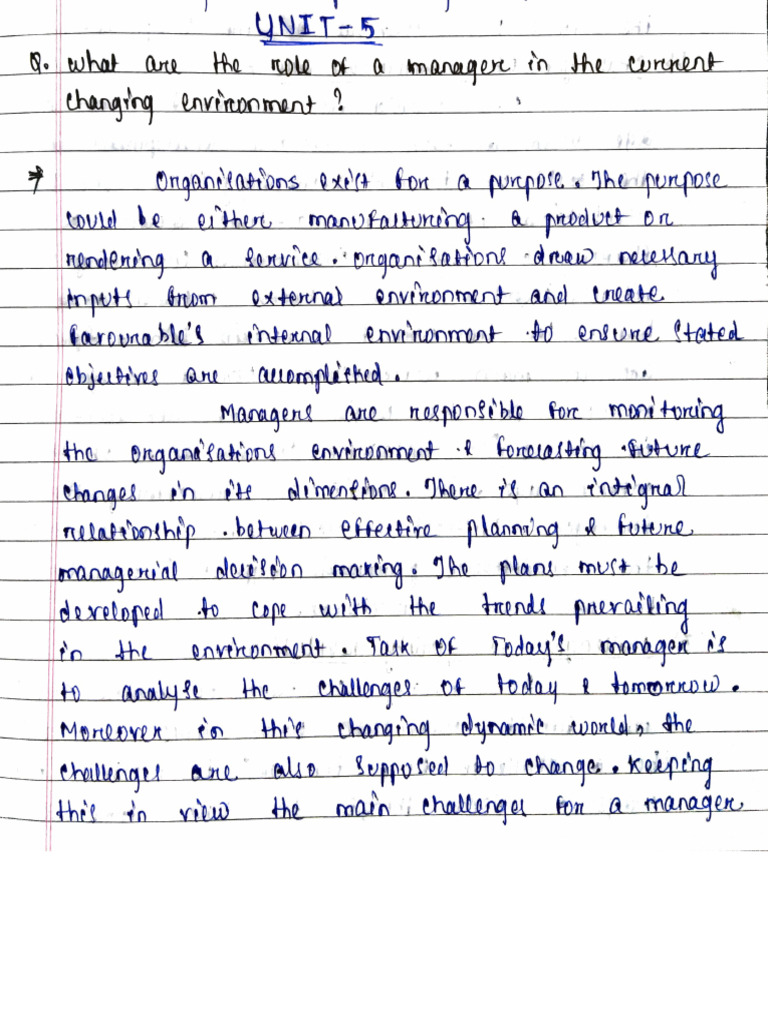 UNIT-5
Q. what are the role of a manager in the current
changing environment ?
→ Organisations exist for a purpose. The purpose
could be either manufacturing a product or
rendering a service. Organisations draw necessary
inputs from external environment and create
favourable's internal environment to ensure stated
objectives are accomplished.
Managers are responsible for monitoring
the organisations environment & forecasting future
changes in its dimentions. There is an integral
relationship between effective planning & future
managerial decision making. The plans must be
developed to cope with the trends prevailing
in the environment. Task of Today's manager is
to analyse the challenges of today & tomorrow.
Moreover in this changing dynamic world, the
challenges are also supposed to change. Keeping
this in view the main challenges for a manager